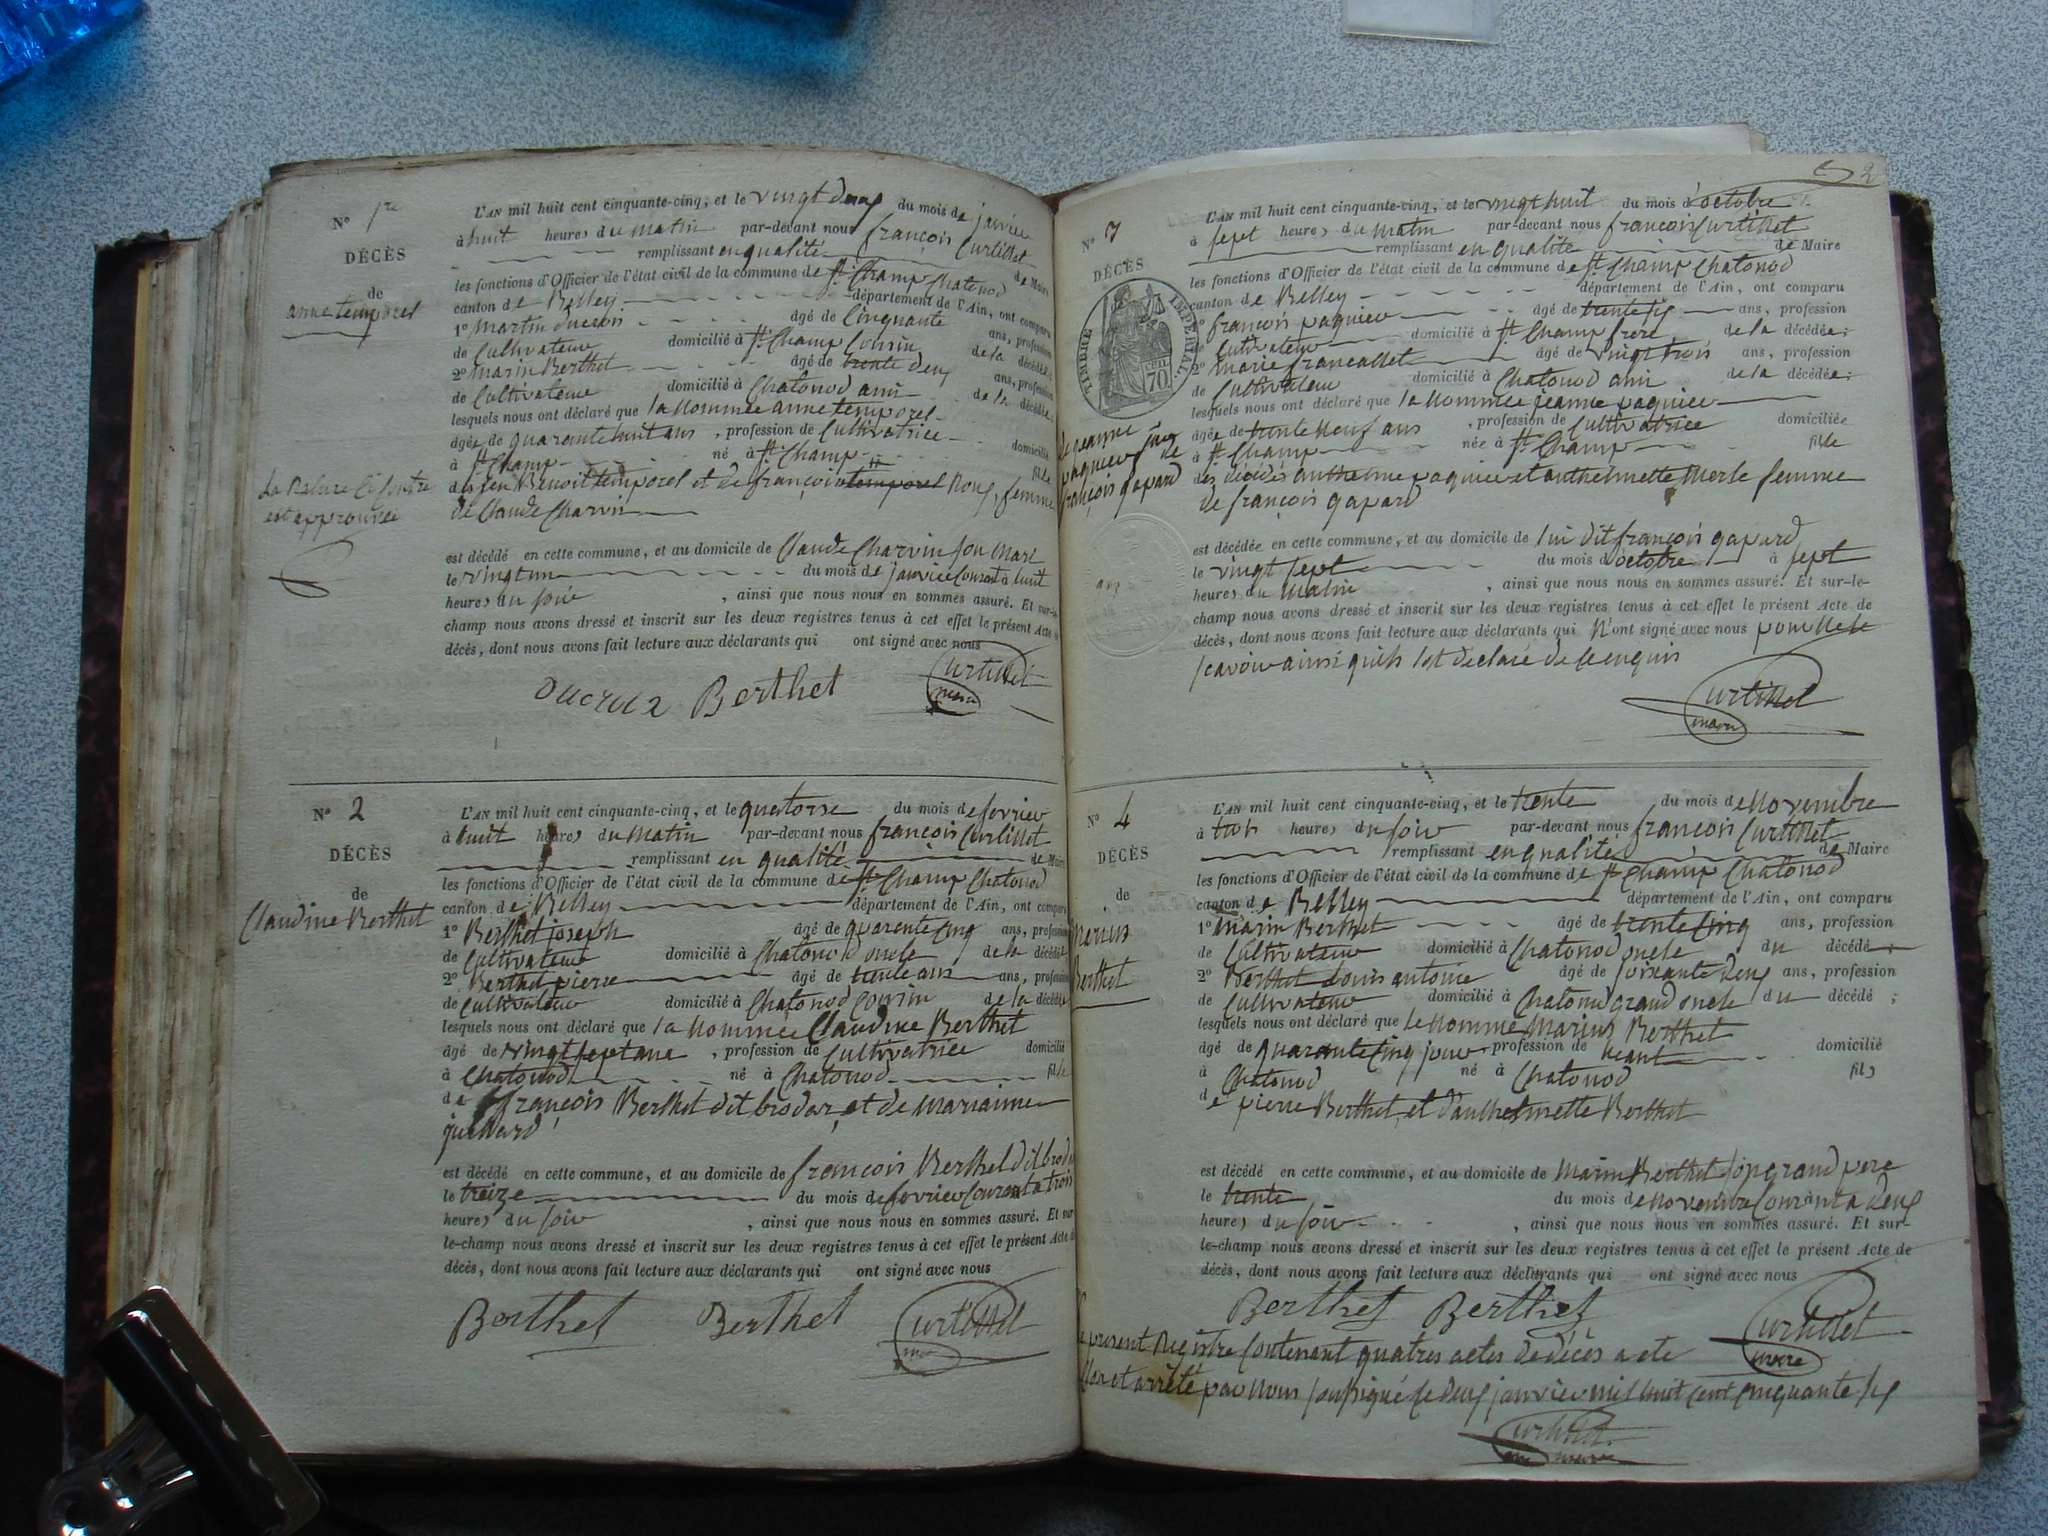 N° 1re
DÉCÈS
de
anne temporel
La Rature Ci Contre
est approuvée
L'AN mil huit cent cinquante-cinq, et le vingt deux du mois de janvier
à huit heures du matin par-devant nous françois Curtillet
remplissant en qualité de Maire
les fonctions d'Officier de l'état civil de la commune de St Champ Chatonod
canton de Belley département de l'Ain, ont comparu
1° Martin ducrui âgé de Cinquante ans, profession
de Cultivateur domicilié à St Champ Cousin de la décédée
2° Marin Berthet âgé de trente deux ans, profession
de Cultivateur domicilié à Chatonod ami de la décédée;
lesquels nous ont déclaré que la Nommée anne temporel
âgée de quarante huit ans, profession de Cultivatrice domicilié
à St Champ né à St Champ fille
de feu Benoit temporel et de françoise temporel Roux, femme
de Claude Charvin
est décédé en cette commune, et au domicile de Claude Charvin son Mari
le vingt un du mois de janvier Courant à huit
heures du soir, ainsi que nous nous en sommes assuré. Et sur-le-
champ nous avons dressé et inscrit sur les deux registres tenus à cet effet le présent Acte
décès, dont nous avons fait lecture aux déclarants qui ont signé avec nous
Ducruz Berthet Curtillet
maire
N° 2
DÉCÈS
de
Claudine Berthet
L'AN mil huit cent cinquante-cinq, et le quatorze du mois de fevrier
à huit heures du matin par-devant nous françois Curtillet
remplissant en qualité de Maire
les fonctions d'Officier de l'état civil de la commune de St Champ Chatonod
canton de Belley département de l'Ain, ont comparu
1° Berthet joseph âgé de quarente cinq ans, profession
de Cultivateur domicilié à Chatonod oncle de la décédée
2° Berthet pierre âgé de trente ans ans, profession
de Cultivateur domicilié à Chatonod Cousin de la décédée
lesquels nous ont déclaré que la Nommée Claudine Berthet
âgé de vingt sept ans, profession de Cultivatrice domicilié
à Chatonod né à Chatonod fille
de françois Berthet dit brodar, et de Mariaime
guillard
est décédé en cette commune, et au domicile de françois Berthet dit brodar
le treize du mois de fevrier Courant à trois
heures du soir, ainsi que nous nous en sommes assuré. Et sur-
le-champ nous avons dressé et inscrit sur les deux registres tenus à cet effet le présent Acte
décès, dont nous avons fait lecture aux déclarants qui ont signé avec nous
Berthet Berthet Curtillet
2
N° 3
DÉCÈS
TIMBRE IMPÉRIAL
70 cen
de jeanne
paquier
de
françois gapard
L'AN mil huit cent cinquante-cinq, et le vingt huit du mois d'octobre
à sept heures du matin par-devant nous françois Curtillet
remplissant en qualité de Maire
les fonctions d'Officier de l'état civil de la commune de St Champ Chatonod
canton de Belley département de l'Ain, ont comparu
1° françois paquier âgé de trente six ans, profession
de Cultivateur domicilié à St Champ frere de la décédée;
2° Marie francallet âgé de vingt trois ans, profession
de Cultivateur domicilié à Chatonod ami de la décédée;
lesquels nous ont déclaré que la Nommée jeanne paquier
âgée de trente Neuf ans, profession de Cultivatrice domiciliée
à St Champ née à St Champ fille
des décédés anthelme paquier et anthelmette Merle femme
de françois gapard
est décédée en cette commune, et au domicile de lui dit françois gapard
le vingt sept du mois d'octobre à sept
heures du matin, ainsi que nous nous en sommes assuré. Et sur-le-
champ nous avons dressé et inscrit sur les deux registres tenus à cet effet le présent Acte de
décès, dont nous avons fait lecture aux déclarants qui N'ont signé avec nous pour Ne le
scavoir ainsi quils l'ot declaré de ce enquis
Curtillet
maire
N° 4
DÉCÈS
de
Marius
Berthet
L'AN mil huit cent cinquante-cinq, et le trente du mois de Novembre
à trois heures du soir par-devant nous françois Curtillet
remplissant en qualité de Maire
les fonctions d'Officier de l'état civil de la commune de St Champ Chatonod
canton de Belley département de l'Ain, ont comparu
1° Marin Berthet âgé de trente Cinq ans, profession
de Cultivateur domicilié à Chatonod oncle du décédé;
2° Berthet Louis antoine âgé de soixante deux ans, profession
de Cultivateur domicilié à Chatonod grand oncle du décédé;
lesquels nous ont déclaré que le Nommé Marius Berthet
âgé de quarante Cinq jour profession de Neant domicilié
à Chatonod né à Chatonod fils
de pierre Berthet, et d'anthelmette Berthet
est décédé en cette commune, et au domicile de Marin Berthet son grand pere
le trente du mois de Novembre Courant à deux
heures du soir, ainsi que nous nous en sommes assuré. Et sur-
le-champ nous avons dressé et inscrit sur les deux registres tenus à cet effet le présent Acte de
décès, dont nous avons fait lecture aux déclarants qui ont signé avec nous
Berthet Berthet Curtillet
maire
Le present Registre Contenant quatres actes de décès a ete
Clos et arrêté par Nous soussigné le deux janvier mil huit cent cinquante six
Curtillet
maire